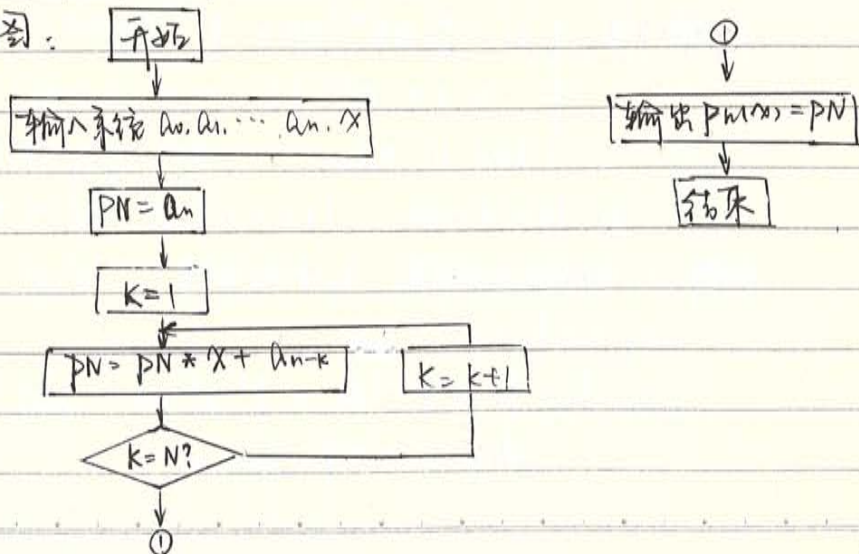 图:
开始
输入系统 a₀, a₁, ⋯, aₙ, x
PN = aₙ
K = 1
PN = PN * x + aₙ₋ₖ
K = k+1
K = N?
①
①
输出 Pn(x) = PN
结束